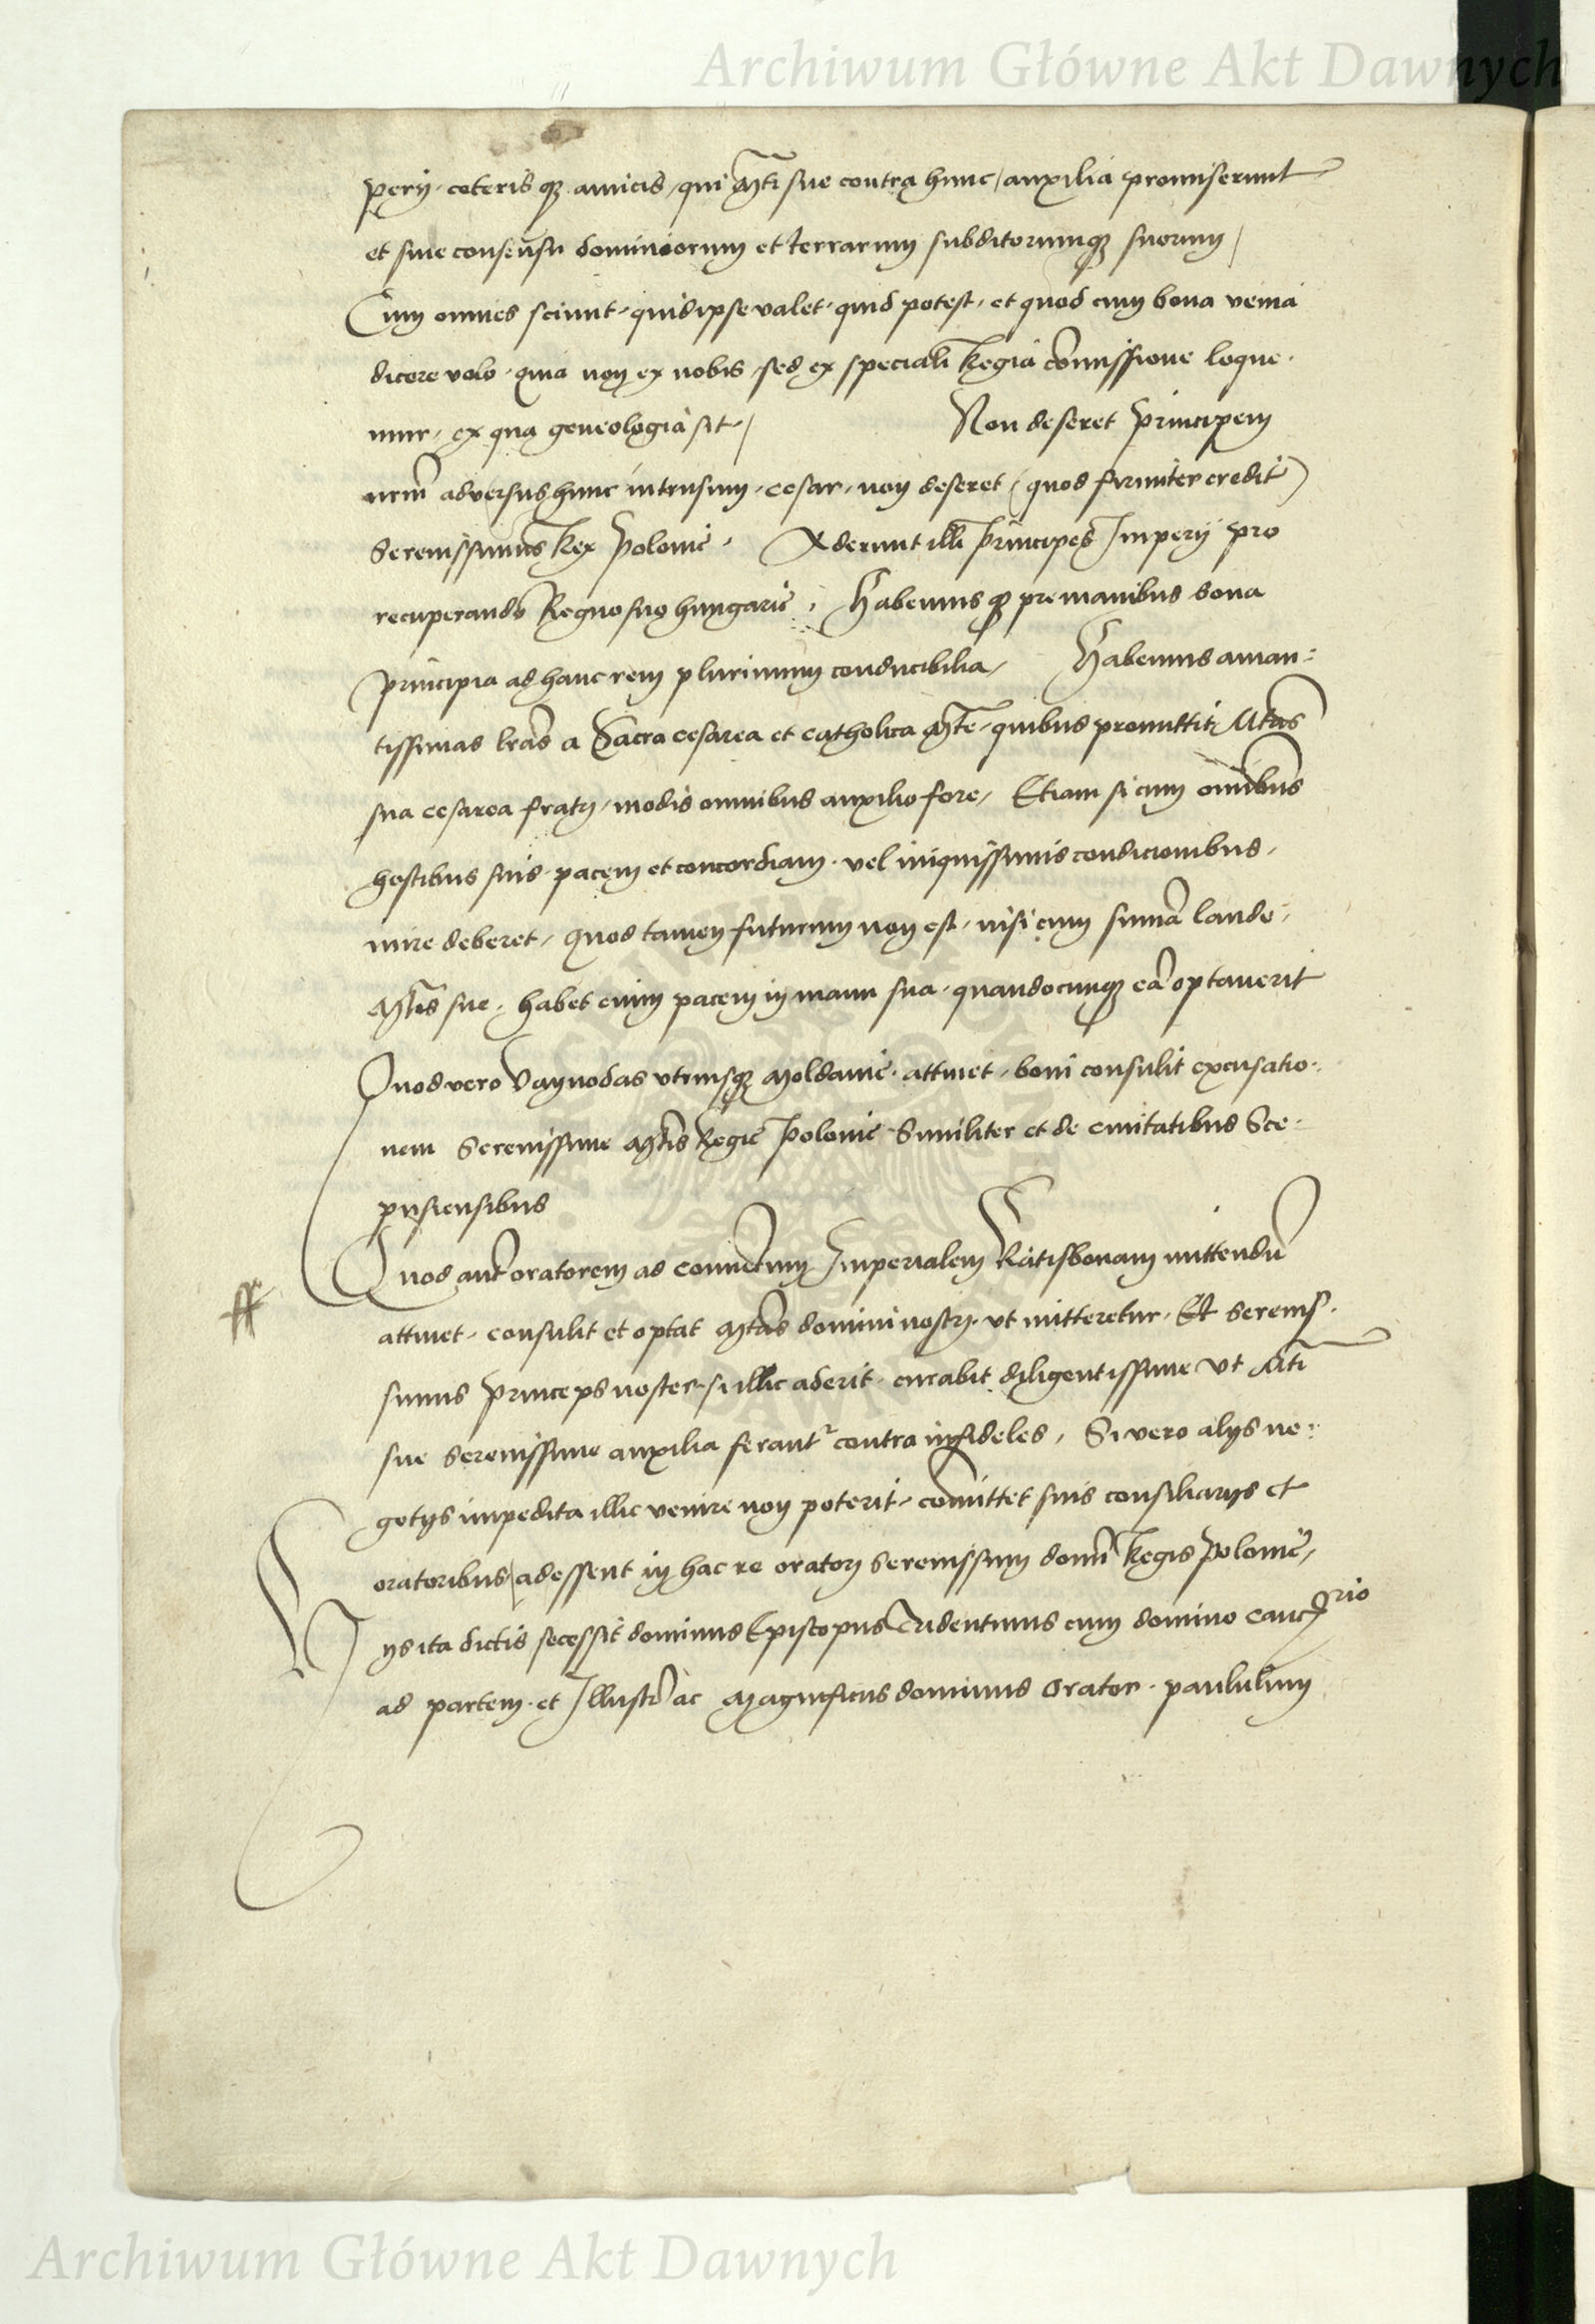 Archiwum Główne Akt Dawnych
perij · ceteris q₃ amicis, qui Mti sue contra hunc / auxilia promiserunt
et sine consensu dominiorum et terrarum subditorumq₃ suorum /
Cum omnes sciunt · quid ipse valet · quid potest · et quod cum bona venia
dicere volo · quia non ex nobis · sed ex speciali Regia comissione loque·
mur · ex qua geneologia sit · / Non deseret Principem
nrm adversus hunc intrusum · cesar, non deseret (quod firmiter credit)
Serenissimus Rex Polonie · Aderunt illi Principes Imperij pro
recuperando Regno suo hungarie · Habemus q₃ pre manibus bona
principia ad hanc rem plurimum conducibilia / Habemus aman:
tissimas lras a Sacra cesarea et catholica Mte · quibus promittit Mtas
sua cesarea fratri, modis omnibus auxilio fore, Etiam si cum omibus
hostibus suis pacem et concordiam · vel iniquissimis condicionibus,
inire deberet, Quod tamen futurum non est, nisi cum suma laude,
Mtis sue · habet enim pacem in manu sua · quandocunq₃ ea optauerit
Quod vero Vayuodas vtriusq₃ Moldauie · attinet, boni consulit excusatio·
nem Serenissime Mtis Regie Polonie Similiter et de ciuitatibus Sce·
pusiensibus
Quod aut oratorem ad conuentum Imperialem Ratisbonam mittendu
ff
attinet · consulit et optat Mtas domini nostri · vt mitteretur · Et Serenis·
simus Princeps noster · si illic aderit · curabit diligentissime vt Mti
sue Serenissime auxilia ferantr contra infideles, Si vero alijs ne:
gotijs impedita illic venire non poterit · comittet suis consiliarijs et
oratoribus / adessent in hac re oratori Serenissimi domi Regis Polonie,
Hijs ita dictis secessit dominus Episcopus Tridentinus cum domino Canc<sup>rio</sup>
ad partem · et Illustr ac Magnificus dominus Orator · paululum
Archiwum Główne Akt Dawnych